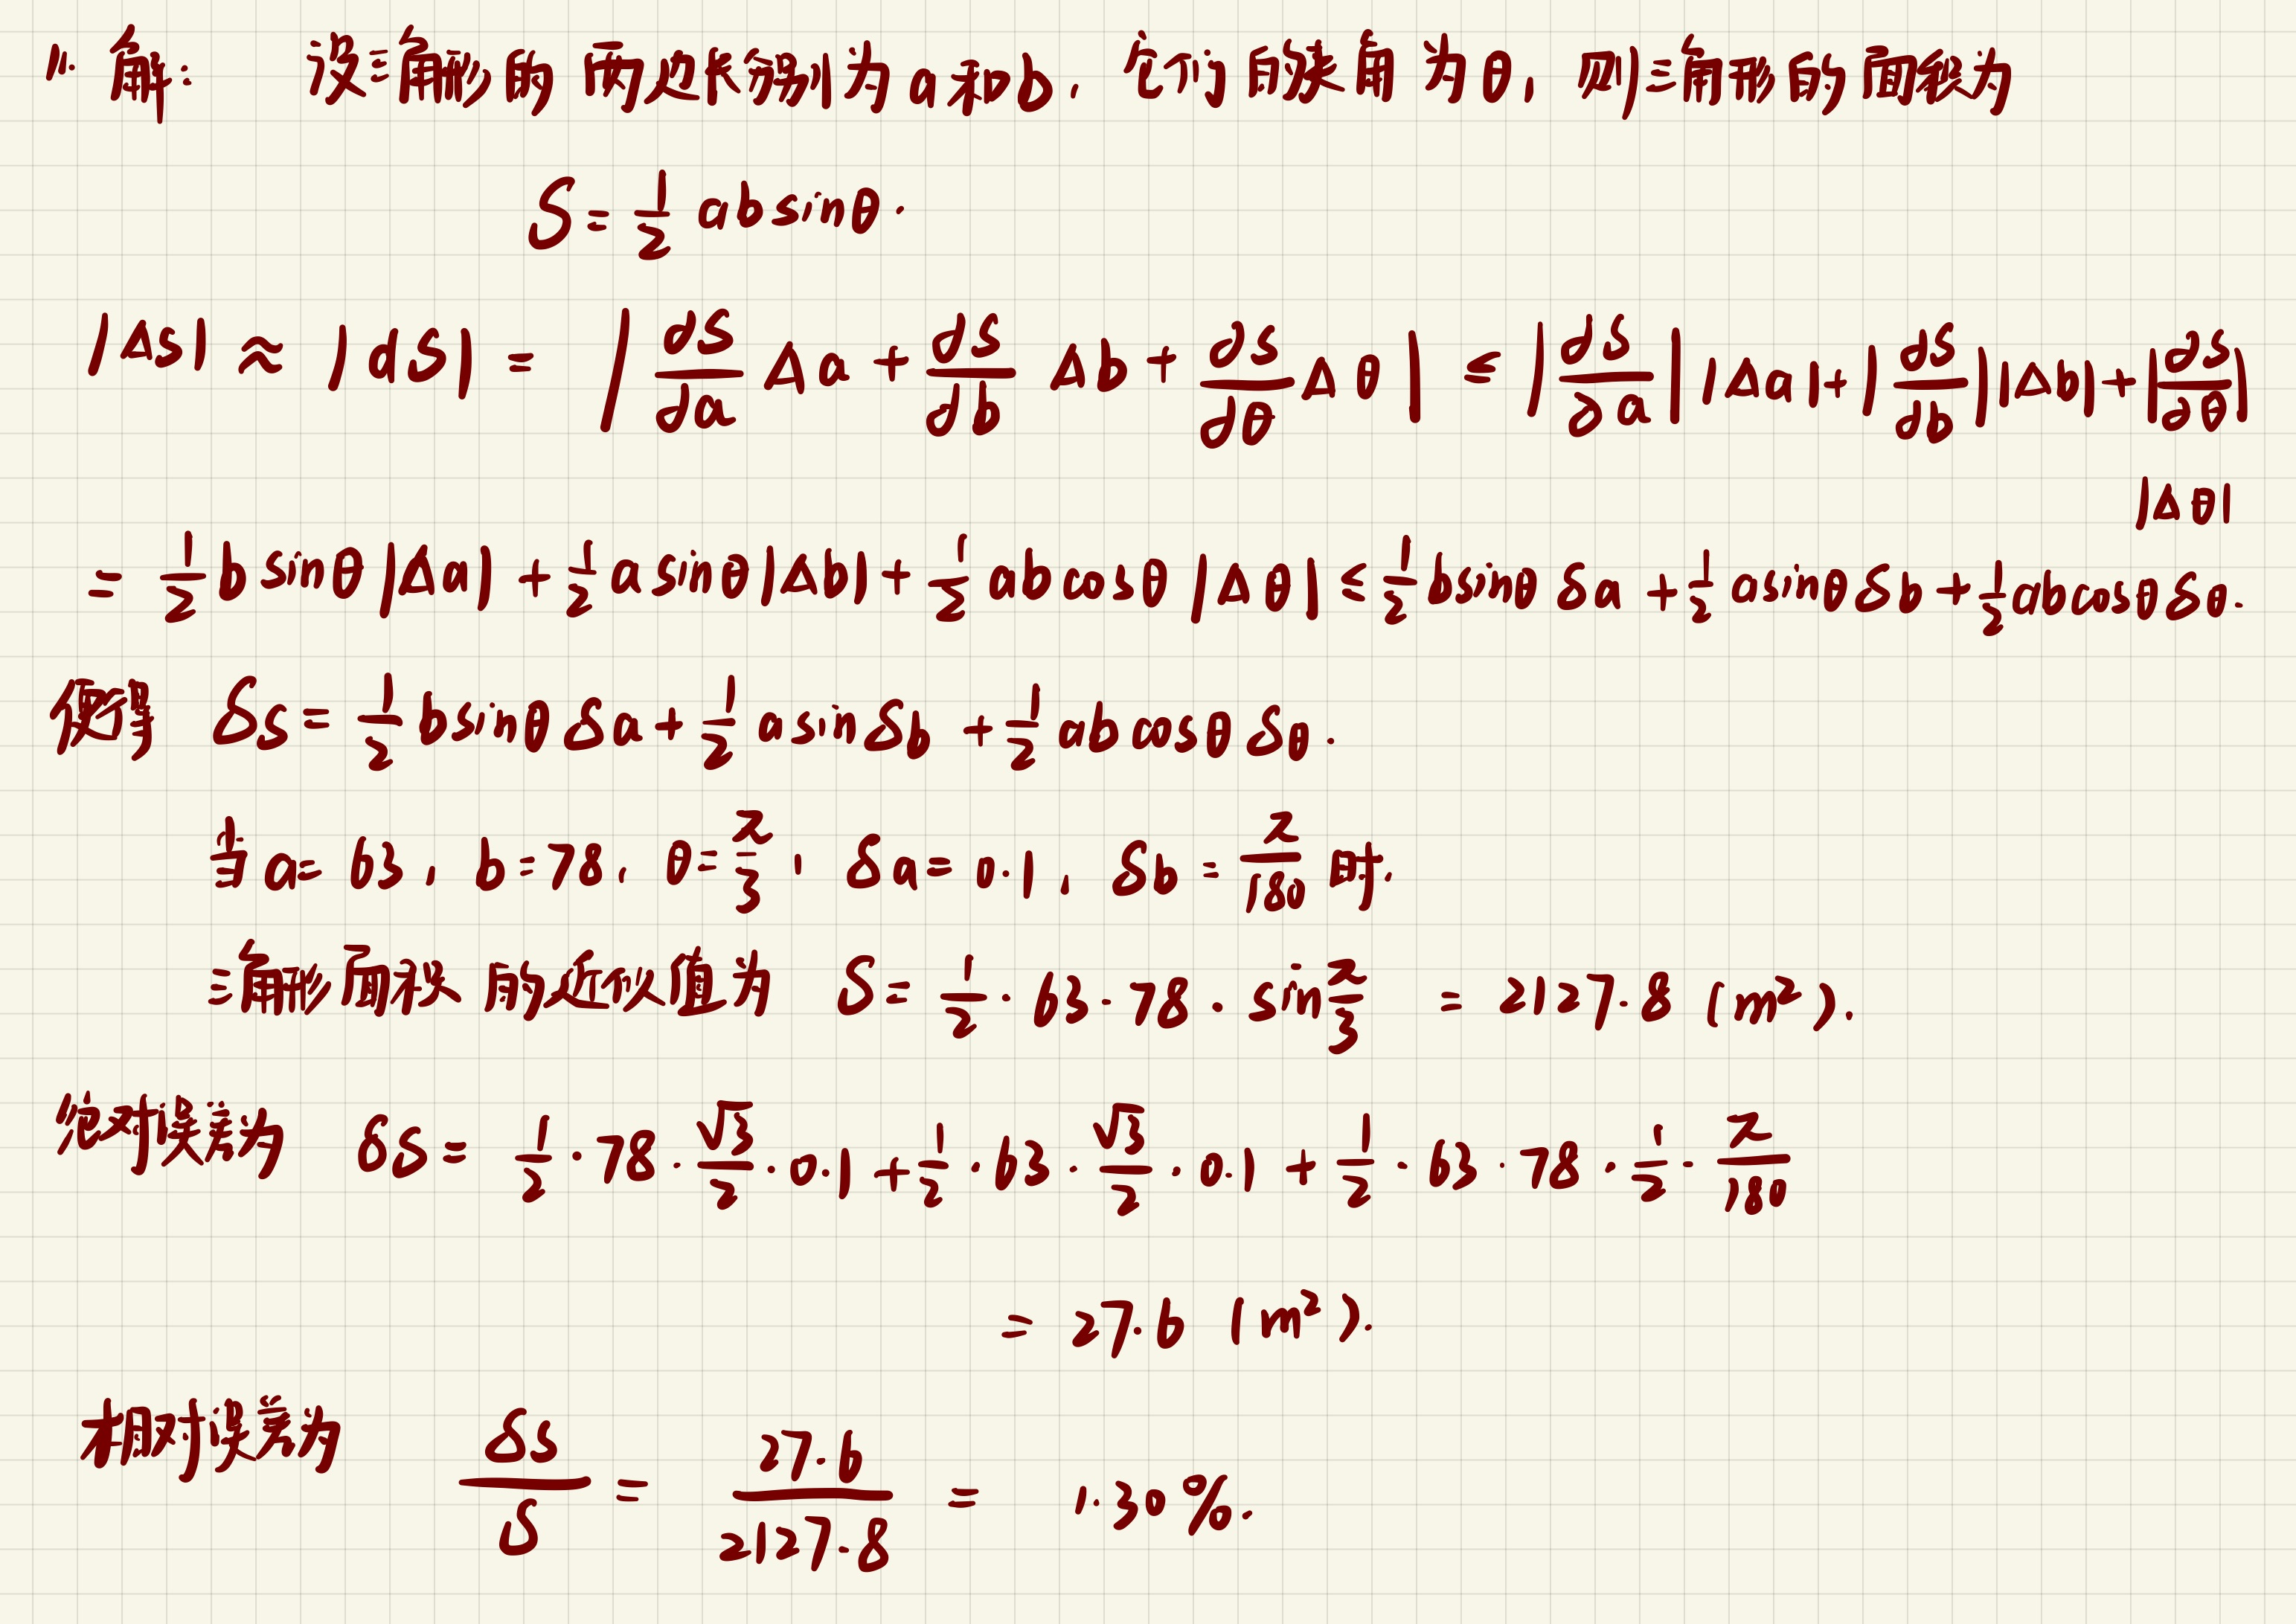 11. 解: 设三角形的两边长分别为a和b, 它们的夹角为θ, 则三角形的面积为
S = 1/2 ab sinθ.
|ΔS| ≈ |dS| = |∂S/∂a Δa + ∂S/∂b Δb + ∂S/∂θ Δθ| ≤ |∂S/∂a| |Δa| + |∂S/∂b| |Δb| + |∂S/∂θ|
|Δθ|
= 1/2 b sinθ |Δa| + 1/2 a sinθ |Δb| + 1/2 ab cosθ |Δθ| ≤ 1/2 b sinθ δa + 1/2 a sinθ δb + 1/2 ab cosθ δθ.
便得 δs = 1/2 b sinθ δa + 1/2 a sin δb + 1/2 ab cosθ δθ.
当 a = 63, b = 78, θ = π/3, δa = 0.1, δb = π/180 时,
三角形面积的近似值为 S = 1/2 · 63 · 78 · sin π/3 = 2127.8 (m²).
绝对误差为 δS = 1/2 · 78 · √3/2 · 0.1 + 1/2 · 63 · √3/2 · 0.1 + 1/2 · 63 · 78 · 1/2 · π/180
= 27.6 (m²).
相对误差为 δs/S = 27.6/2127.8 = 1.30%.